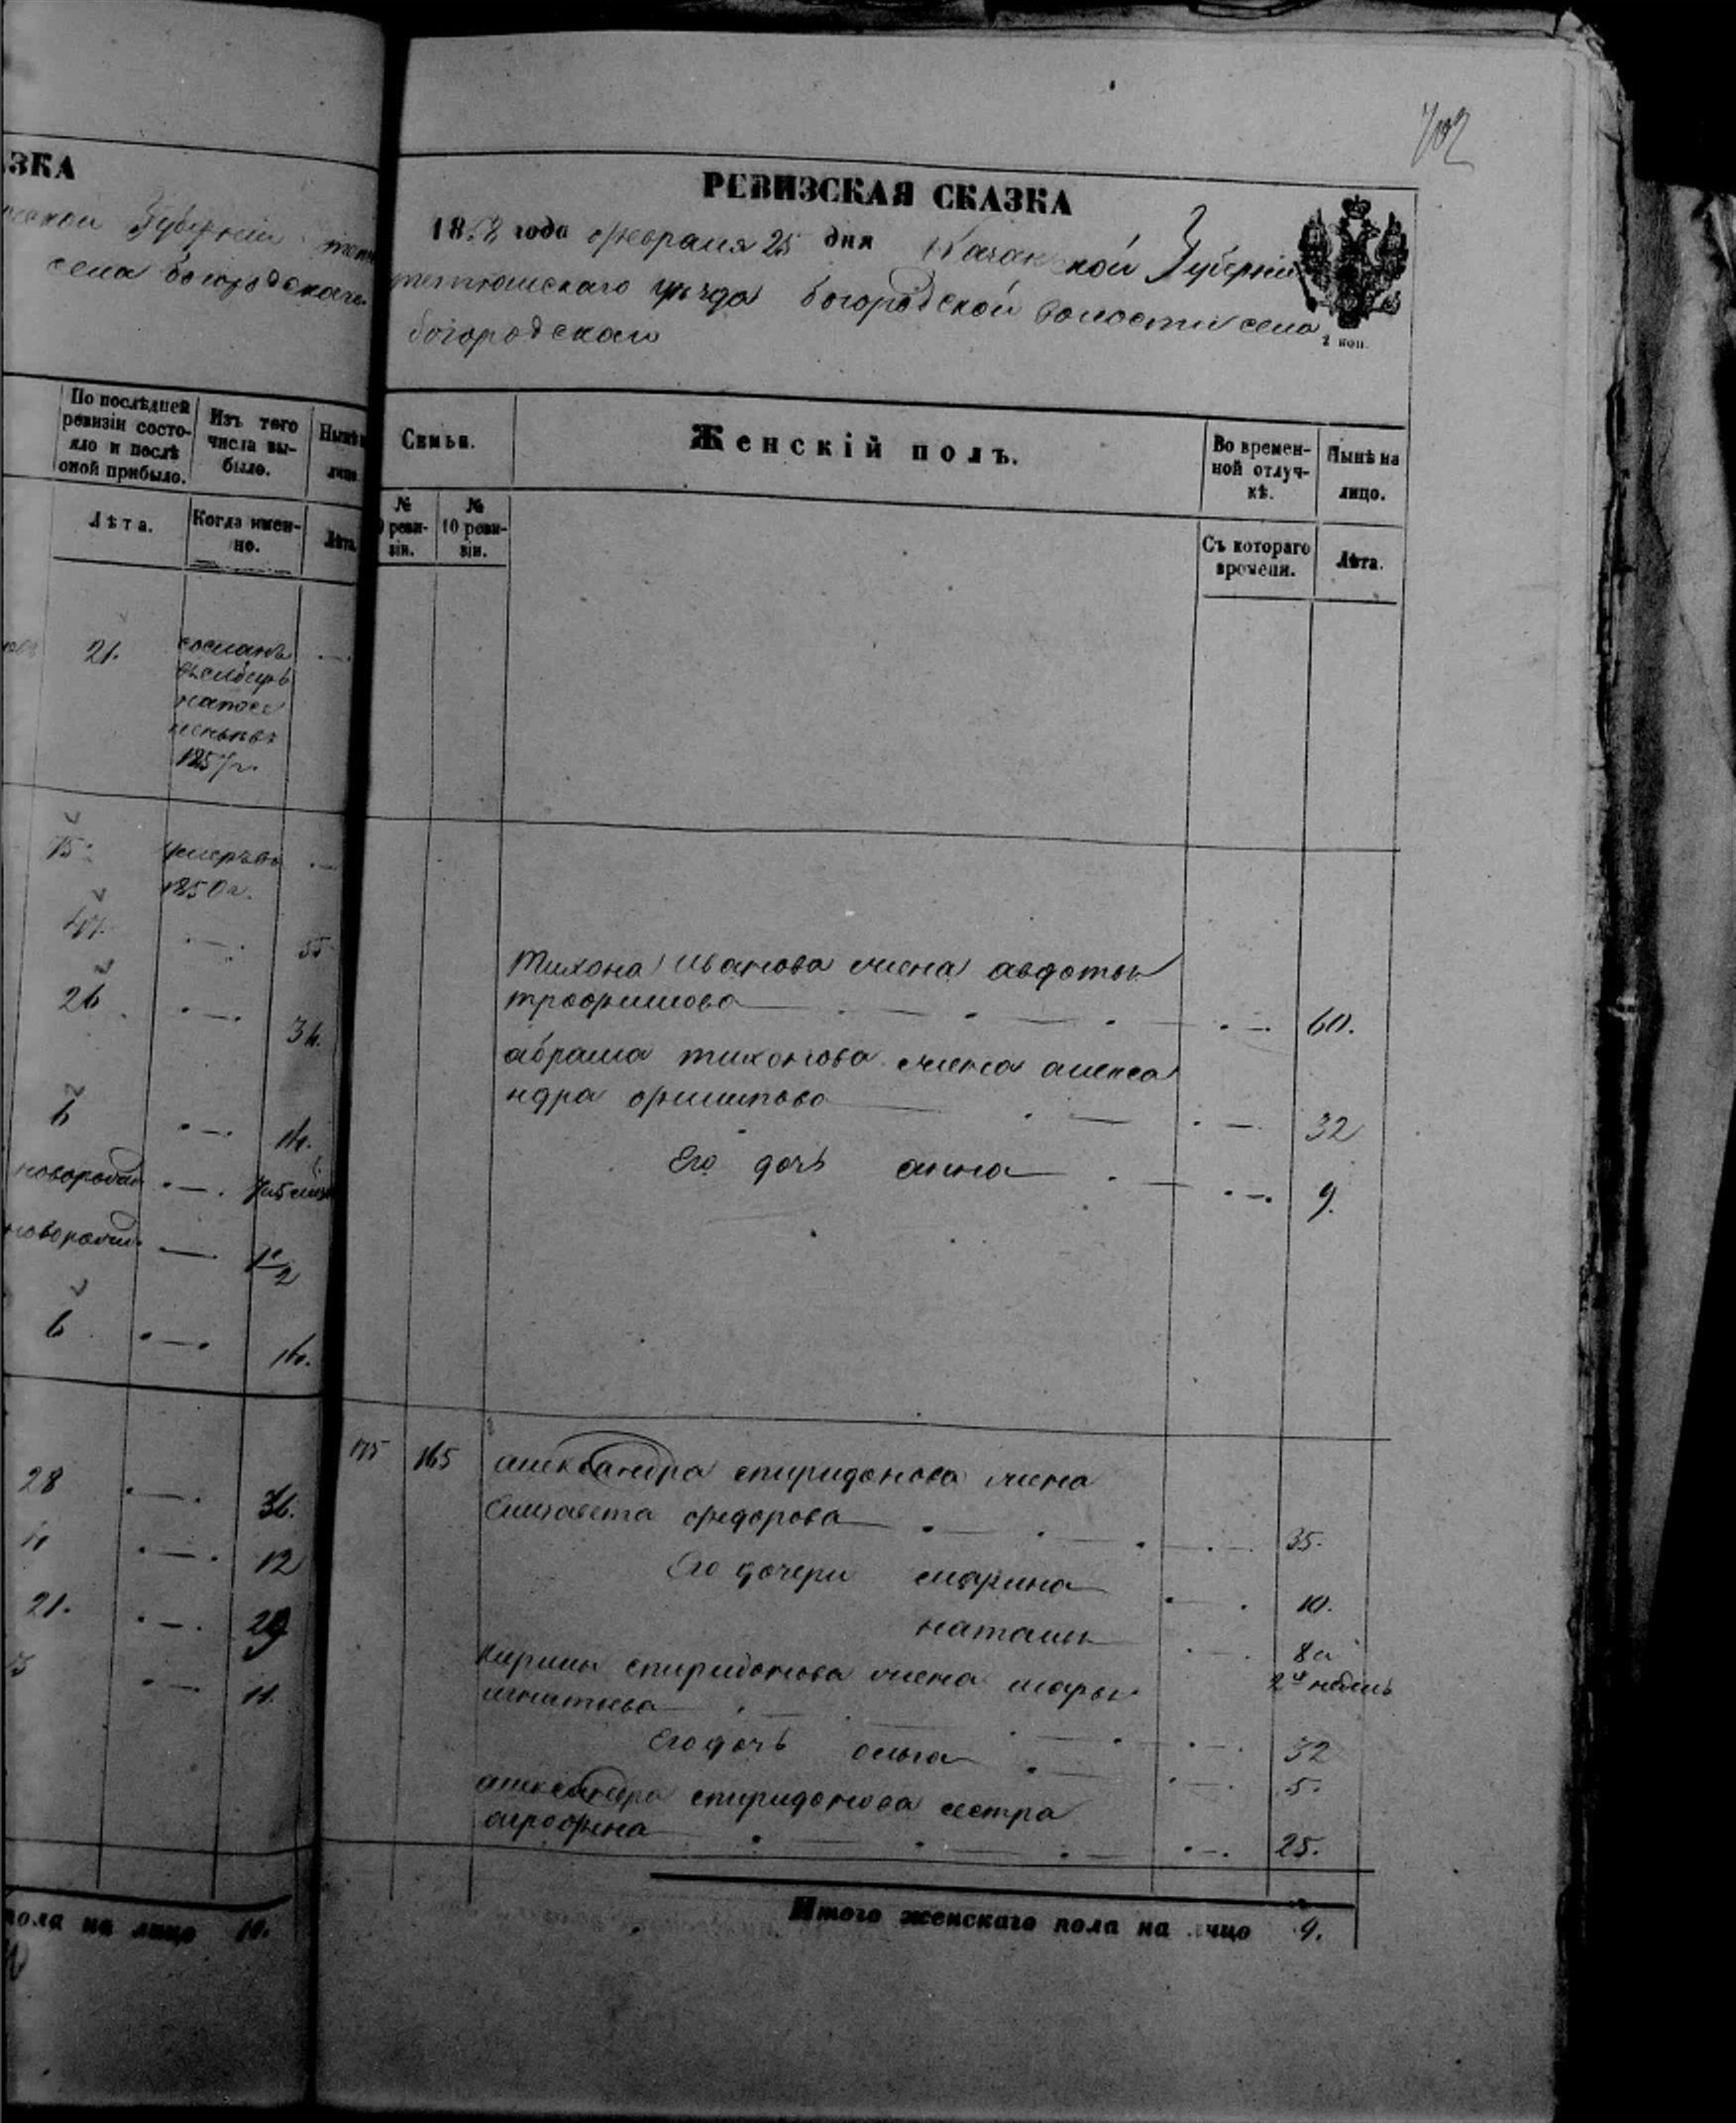 ЗКА
Губерніи
села богородскаго
По послѣдней
ревизіи состо-
яло и послѣ
оной прибыло.
Изъ того
числа вы-
было.
Нынѣ
лицо
Лѣта.
Когда имен-
но.
Лѣта.
21.
сосланъ
въ сибирь
на посе
леньи въ
1857 г.
75.
умеръ въ
1850 г.
47.
55
26
34.
6
14.
новорожд
новорожд.
1/2
6
14.
28
36.
4
12
21.
29
3
11.
пола на лицо 10.
702
РЕВИЗСКАЯ СКАЗКА
1858 года февраля 25 дня Казанской Губерніи
тетюшскаго уезда богородской волости села
богородскаго
2 коп.
Семьи.
Женскій полъ.
Во времен-
ной отлуч-
кѣ.
Нынѣ на
лицо.
№
9 реви-
зіи.
№
10 реви-
зіи.
Съ котораго
времени.
Лѣта.
Тихона Иванова жена авдотья
трофимова 60.
абрама тихонова жена алекса
ндра филипова 32
Его дочь анна 9.
175 165 александра спиридонова жена
Елизавета федорова 35.
Его дочери марина 10.
наталья 8 и
2 недель
кирилы спиридонова жена марья
игнатьева 32
Его дочь ольга 5.
александра спиридонова сестра
агрофена 25.
Итого женскаго пола на лицо 9.